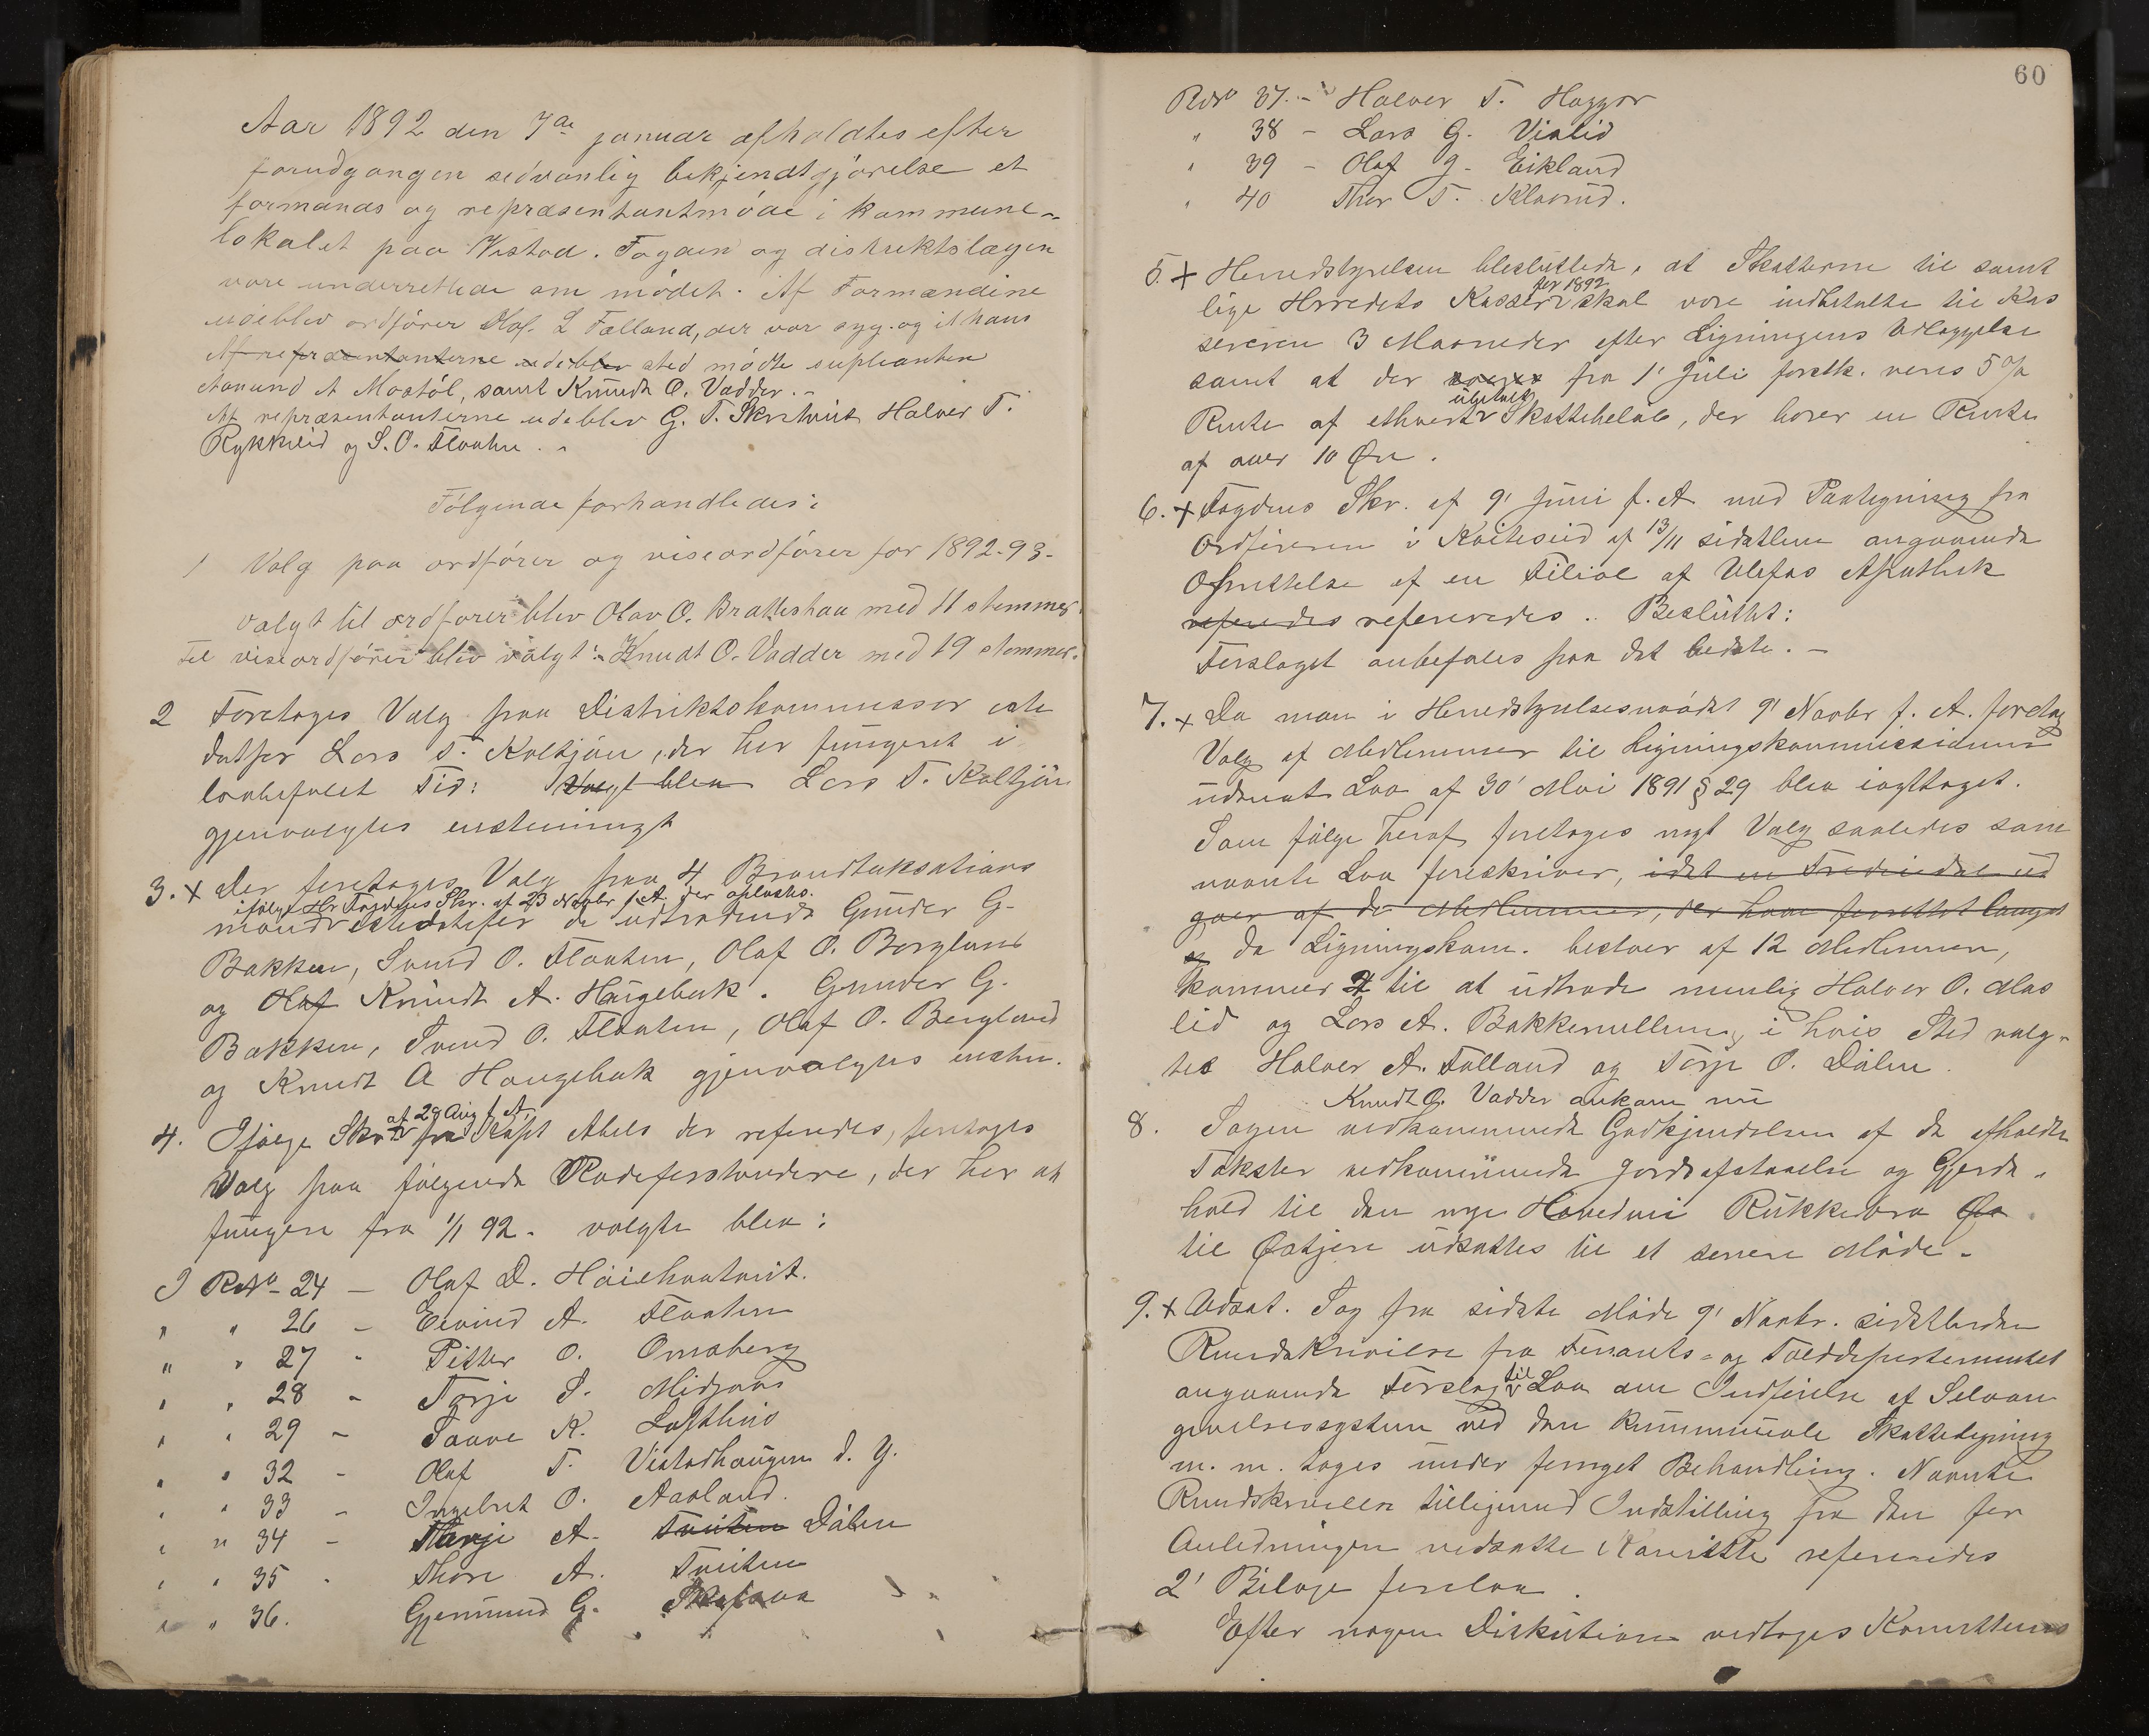 Aar 1892 den 7de januar afholdtes efter
forudgangen sedvanlig bekjendtgjørelse et
formands og repræsentantmøde i kommune-
lokalet paa Vistad. Fogden og distriktslægen
vare underrettede om mødet. Af Formændene
udeblev ordfører Olaf L Fælland, der var syg. og it hans
Af repræsentanterne udeblev sted mødte supleanten
Aanund A Mostøl, samt Knudt O. Vadder. -
Af repræsentanterne udeblev G. T. Halvor T.
Rykkelid og S. O. Flaaten. -
Følgende forhandledes:
1 Valg paa ordfører og viseordfører for 1892-93-
valgt til ordfører blev Olav O. Bratteshaa med 11 stemmer.
Til viseordfører blev valgt: Knudt O. Vadder med 19 stemmer.
2 Foretoges Valg paa Distriktskommissær iste
detfor Lars T. Kaltjön, der her fungeret i
lovbefalet Tid: Valgt blev Lars T. Kaltjön
gjenvalgtes enstemmigt
3. x Der foretoges Valg paa 4 Brandtaksations
ifølge Hr Fogdens Skr. af 23 Novbr f. A. der oplæstes.
mænd istedetfor de udtrædende Gunder G.
Bakken, Svend O. Flaaten, Olaf O. Bergland
og Olaf Knudt A. Haugebak. Gunder G.
Bakken, Svend O. Flaaten, Olaf O. Bergland
og Knudt A Haugebak gjenvalgtes enstem.
af 29 Aug f. A.
4. Ifølge Skr. fra Kapt Abels der referedes, foretoges
Valg paa følgende Rodeforstandere, der her at
fungere fra 1/1 92. valgte blev:
I Rode - 24 - Olaf D.
" " 26 - Eivind A. Flaaten
" " 27 - Pitter O. Omaberg
" " 28 - Torje S. Midgaas
" " 29 - Saave K. Lofthuis
" " 32 - Olaf T. Vistadhaugen d. y.
" " 33 - Ingebret O. Aasland.
" " 34 - Terje A. Tveiten Dålen
" " 35 - Thore A. Tveiten
" " 36. Gjermund G.
60
Rode 37. - Halvor T. Haggar
" 38 - Lars G. Vialid
" 39 - Olaf G. Eikland
" 40 Thor T. Klovrud.
5. x Herredstyrelsen besluttede, at Skatterne til samt
for 1892
lige Herredets Kasser skal være indbetalte til Kas
sereren 3 Maaneder efter Ligningens Udlæggelse
samt at der fra 1' Juli førstk. svares 5 %
ubetalt
Rente af ethvert Skattebeløb, der bærer en Rente
af over 10 Øre.
6. x Fogdens Skr. af 9' Juni f. A. med Paategning fra
Ordføreren i Kvitseid af 13/11 sidstleden angaaende
Oprettelse af en Filial af Ulefos Apothek
referedes refereredes. Besluttet:
Forslaget anbefales paa det bedste. -
7. x Da man i Herredstyrelsesmødet 9' Novbr f. A. foretog
Valg af Medlemmer til Ligningskommissionen
udenat Lov af 30' Mai 1891 § 29 blev iagttaget.
Som følge heraf foretoges nyt Valg saaledes som
nævnte Lov foreskriver, idet en Trediedel ud
gaar af de Medlemmer, der have forrettet længst
og da Ligningskom. bestaar af 12 Medlemmer,
kommer 2 til at udtræde nemlig Halvor O. Mas
lid og Lars A. Bakkemellem, i hvis Sted valg-
tes Halvor A. Folland og Torje O. Dålen.
Knudt O. Vadder ankom nu
8. Sagen vedkommende Godkjendelsen af de afholdte
Takster vedkommende Jordafstaaelse og Gjerde-
hold til den nye Hovedvei Rukkebra
til Østjern udsattes til et senere Møde.
9. x Udsat. Sag fra sidste Møde 9' Novbr. sidstleden
Rundskrivelse fra Finants- og Tolddepartementet
til
angaaende Forslag Lov om Indførelse af Selvan
givelsessystem ved den kommunale Skatteligning
m. m. toges under fornyet Behandling. Nævnte
Rundskrivelse tilligemed Indstilling fra den for
Anledningen nedsatte Komitte refereredes
2' Bilage forelaa.
Efter nogen Diskution vedtoges Komitteens